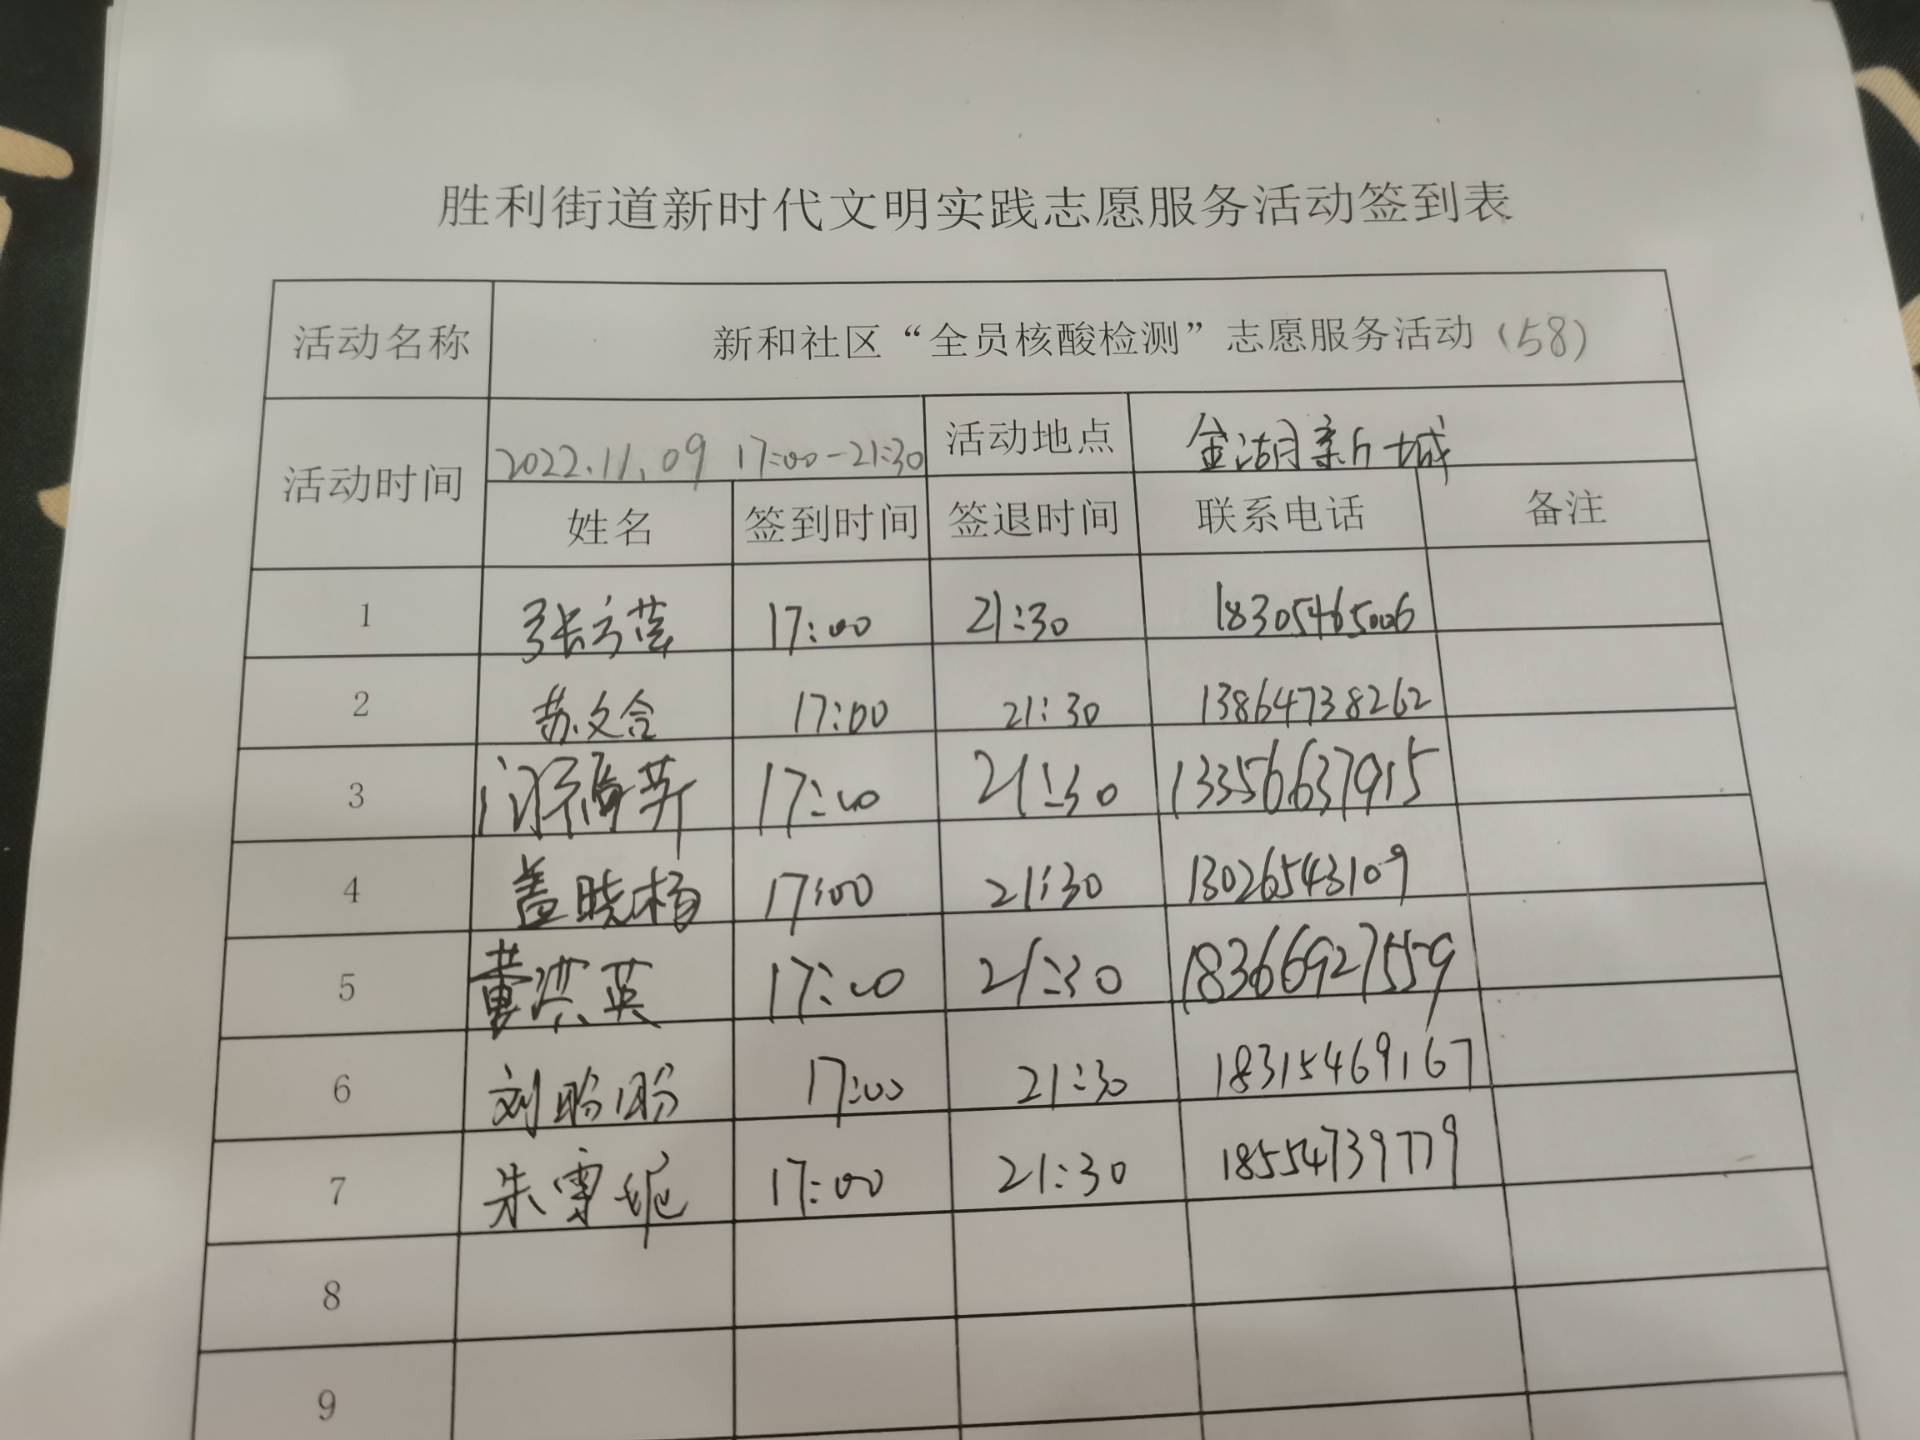 胜利街道新时代文明实践志愿服务活动签到表
活动名称 新和社区“全员核酸检测”志愿服务活动(58)
活动时间 2022.11.09 17:00-21:30 活动地点 金湖新城
姓名 签到时间 签退时间 联系电话 备注
1 张方萍 17:00 21:30 18305465006
2 苏文合 17:00 21:30 13864738262
3 17:00 21:30 13356637915
4 盖晓杨 17:00 21:30 13026543109
5 董洪英 17:00 21:30 18366927559
6 刘盼盼 17:00 21:30 18315469167
7 朱雪妮 17:00 21:30 18554739779
8
9